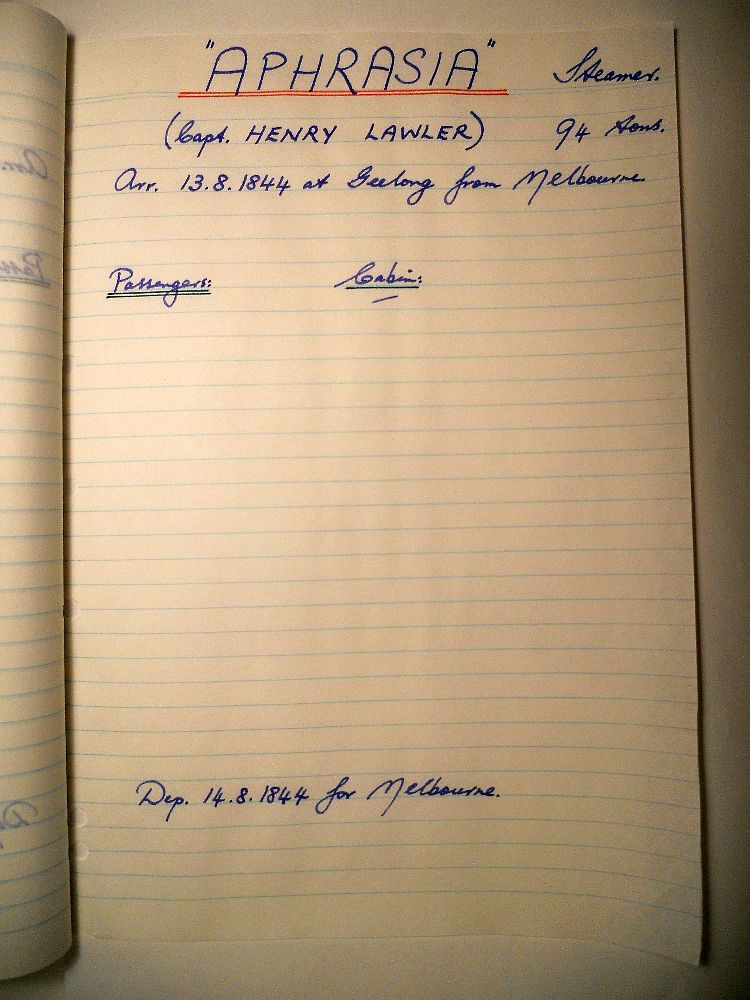 "APHRASIA" Steamer.
(Capt. HENRY LAWLER) 94 tons.
Arr. 13.8.1844 at Geelong from Melbourne
Passengers: Cabin:
—
Dep. 14.8.1844 for Melbourne.